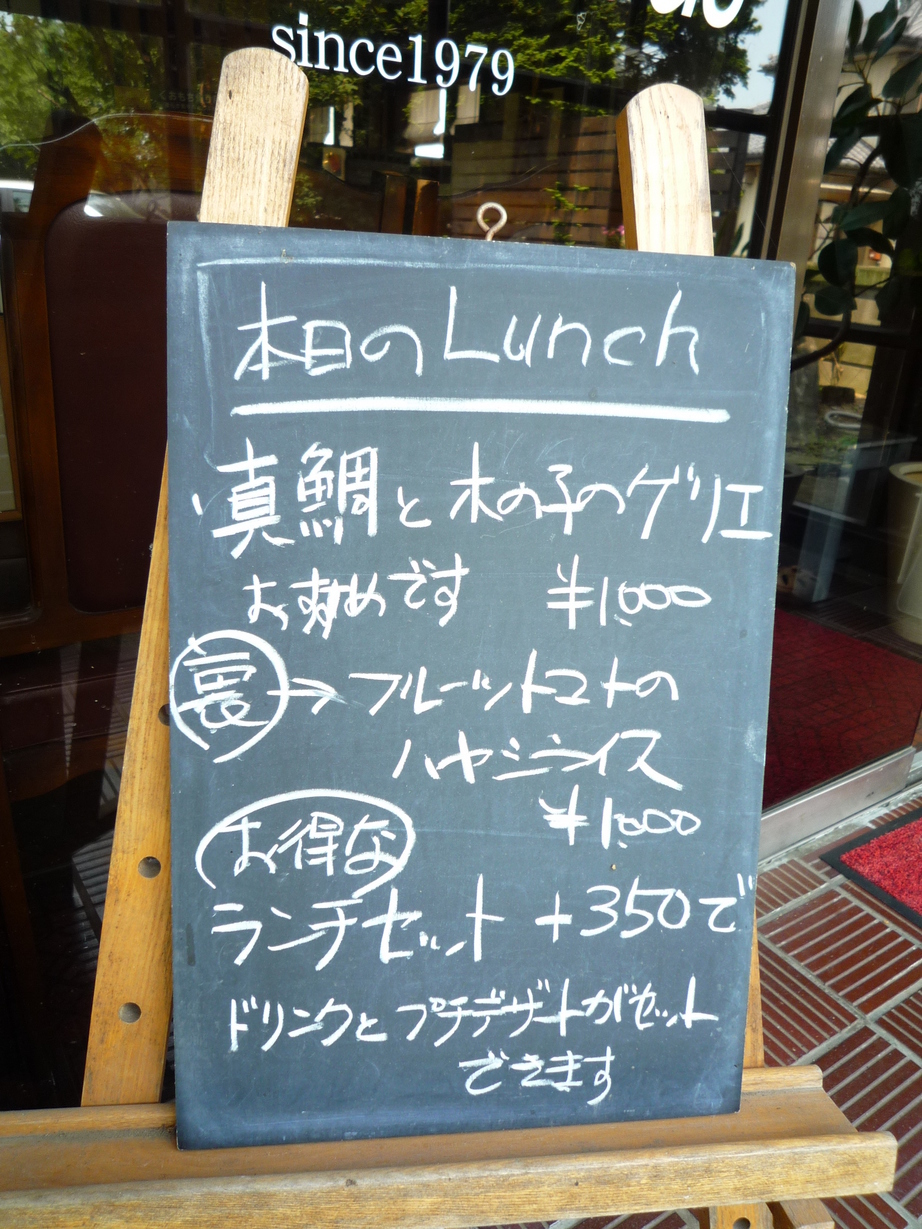 since1979
本日のLunch
真鯛と木の子のグリエ
お奨めです ¥1,000
裏→フルーツトマトの
ハヤシライス
¥1,000
お得な
ランチセット +350で
ドリンクとプチデザートがセット
できます